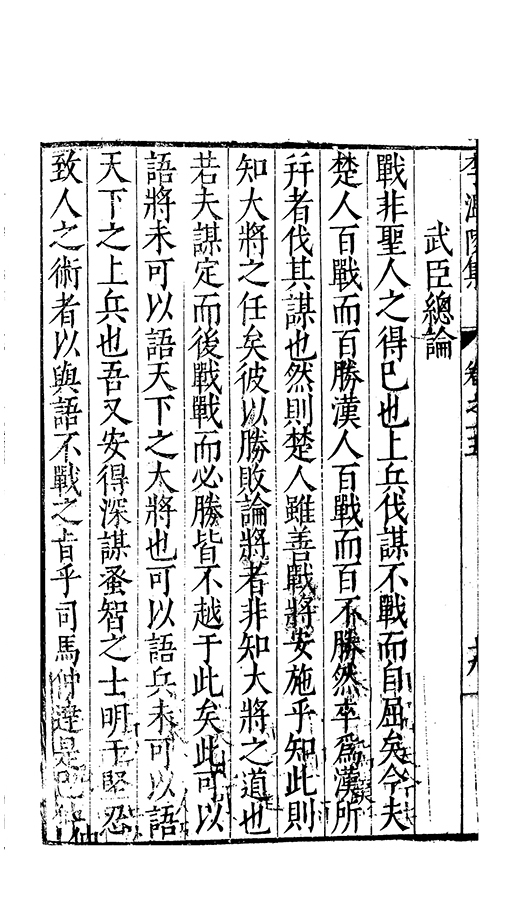 李溫陵集 卷之十五 十九
武臣總論
戰非聖人之得已也上兵伐謀不戰而自屈矣今夫
楚人百戰而百勝漢人百戰而百不勝然卒爲漢所
幷者伐其謀也然則楚人雖善戰將安施乎知此則
知大將之任矣彼以勝敗論將者非知大將之道也
若夫謀定而後戰戰而必勝皆不越于此矣此可以
語將未可以語天下之大將也可以語兵未可以語
天下之上兵也吾又安得深謀蚤智之士明于堅忍
致人之術者以與語不戰之旨乎司馬仲達是已仲